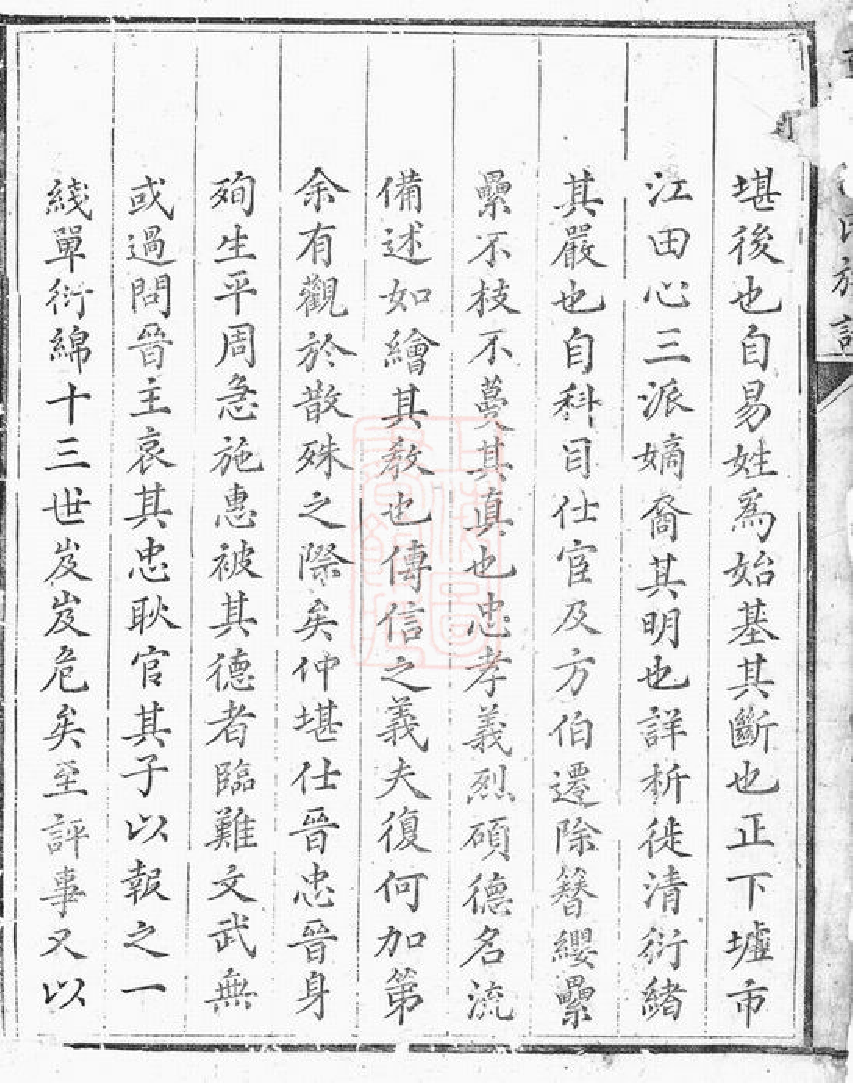 堪後也自易姓爲始基其斷也正下墟市
江田心三派嫡裔其明也詳析徙清衍緒
其嚴也自科目仕宦及方伯遷除簪纓纍
纍不枝不蔓其真也忠孝義烈碩德名流
備述如繪其敎也傳信之義夫復何加第
余有觀於散殊之際矣仲堪仕晉忠晉身
殉生平周急施惠被其德者臨難文武無
或過問晉主哀其忠耿官其子以報之一
綫單衍綿十三世岌岌危矣至評事又以